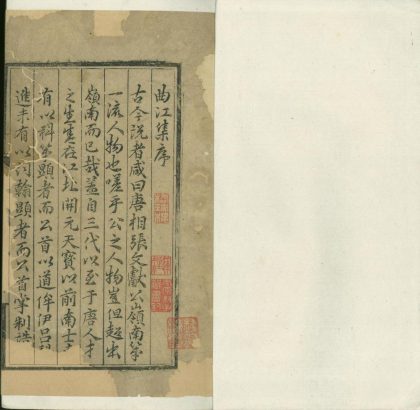 曲江集序
古今説者咸曰唐相張文獻公嶺南第
一流人物也嗟乎公之人物豈但超出
嶺南而已哉蓋自三代以至于唐人才
之生盛在江北開元天寶以前南士未
有以科第顯者而公首以道侔伊呂科
進未有以詞翰顯者而公首掌制誥